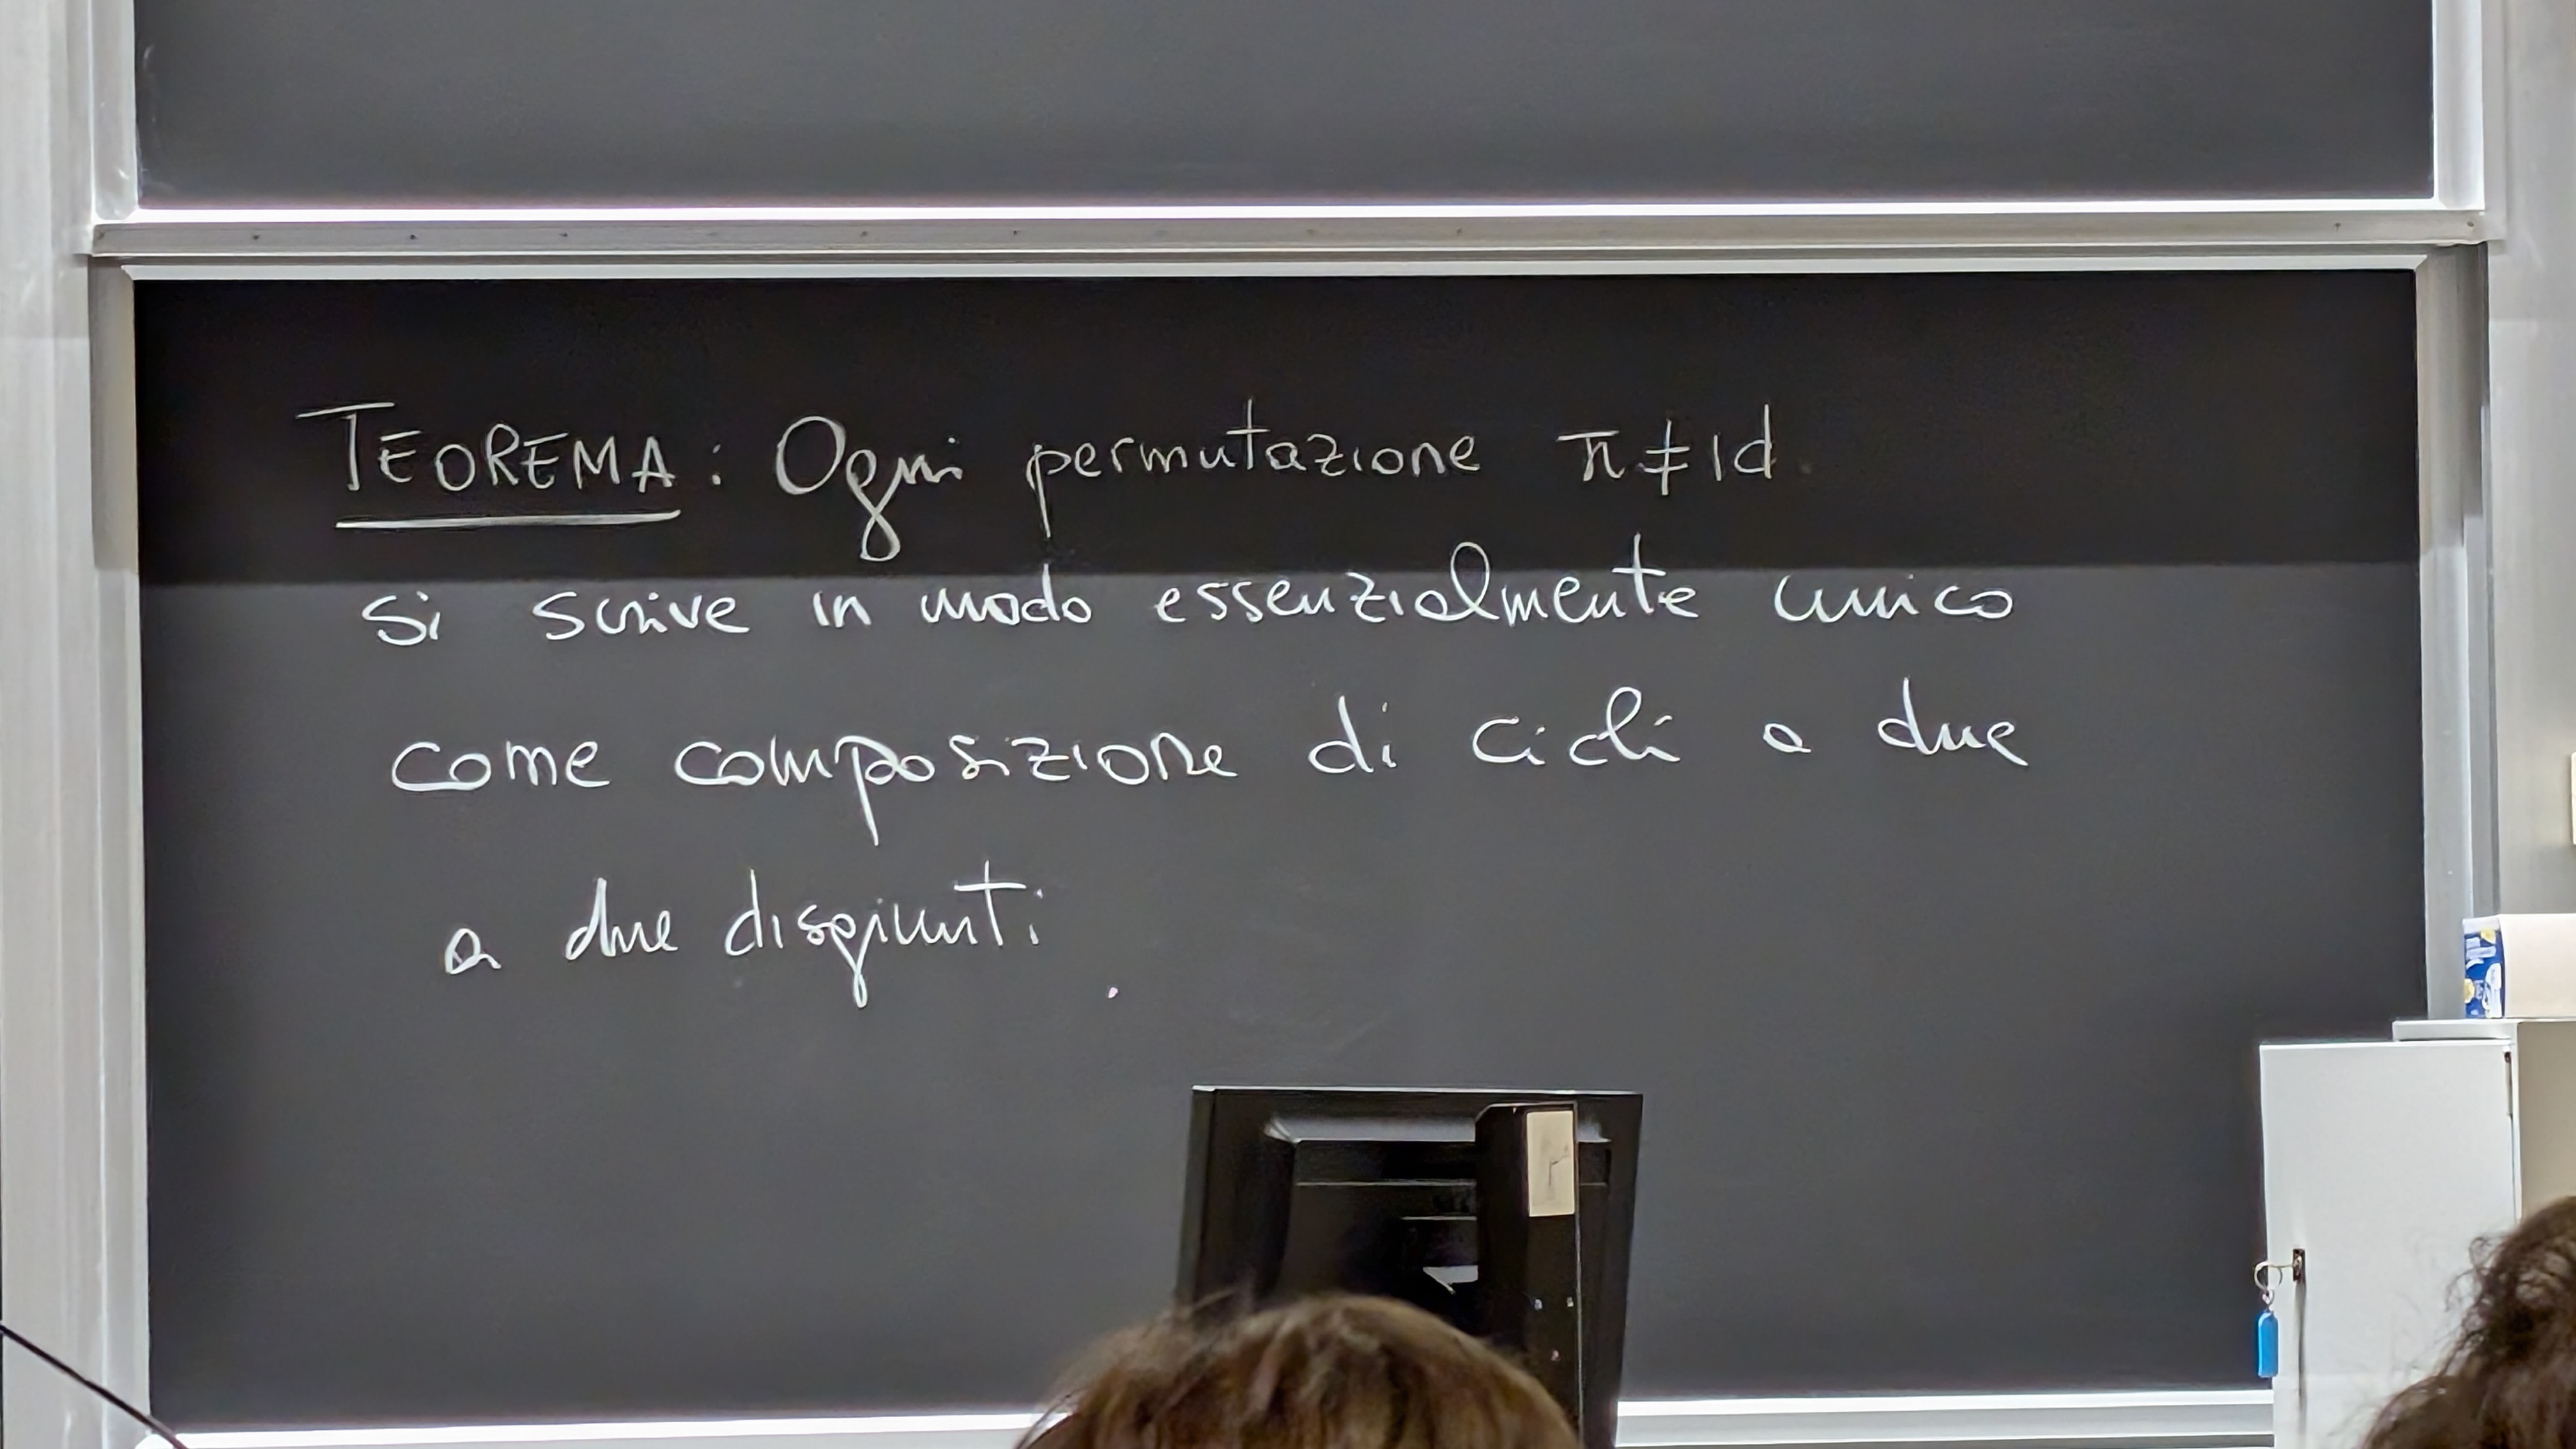 TEOREMA: Ogni permutazione π ≠ id
si scrive in modo essenzialmente unico
come composizione di cicli a due
a due disgiunti.